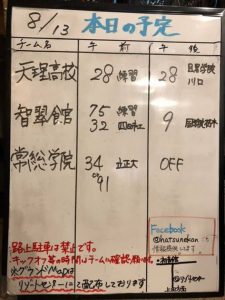 8/13 本日の予定
チーム名 午前 午後
天理高校 28 練習 28
川口
智翠館 75 練習 9
32
常総学院 34 立正大 OFF
91
Facebook
@hatsunekan
路上駐車は禁止です。
キックオフ等の時間はチームに確認願います。
※グラウンドMapは
リゾートセンターにて配布しております